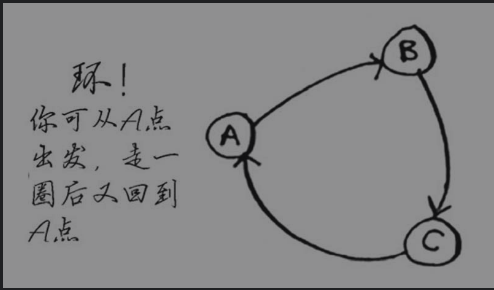 环！
你可从A点
出发，走一
圈后又回到
A点
A
B
C